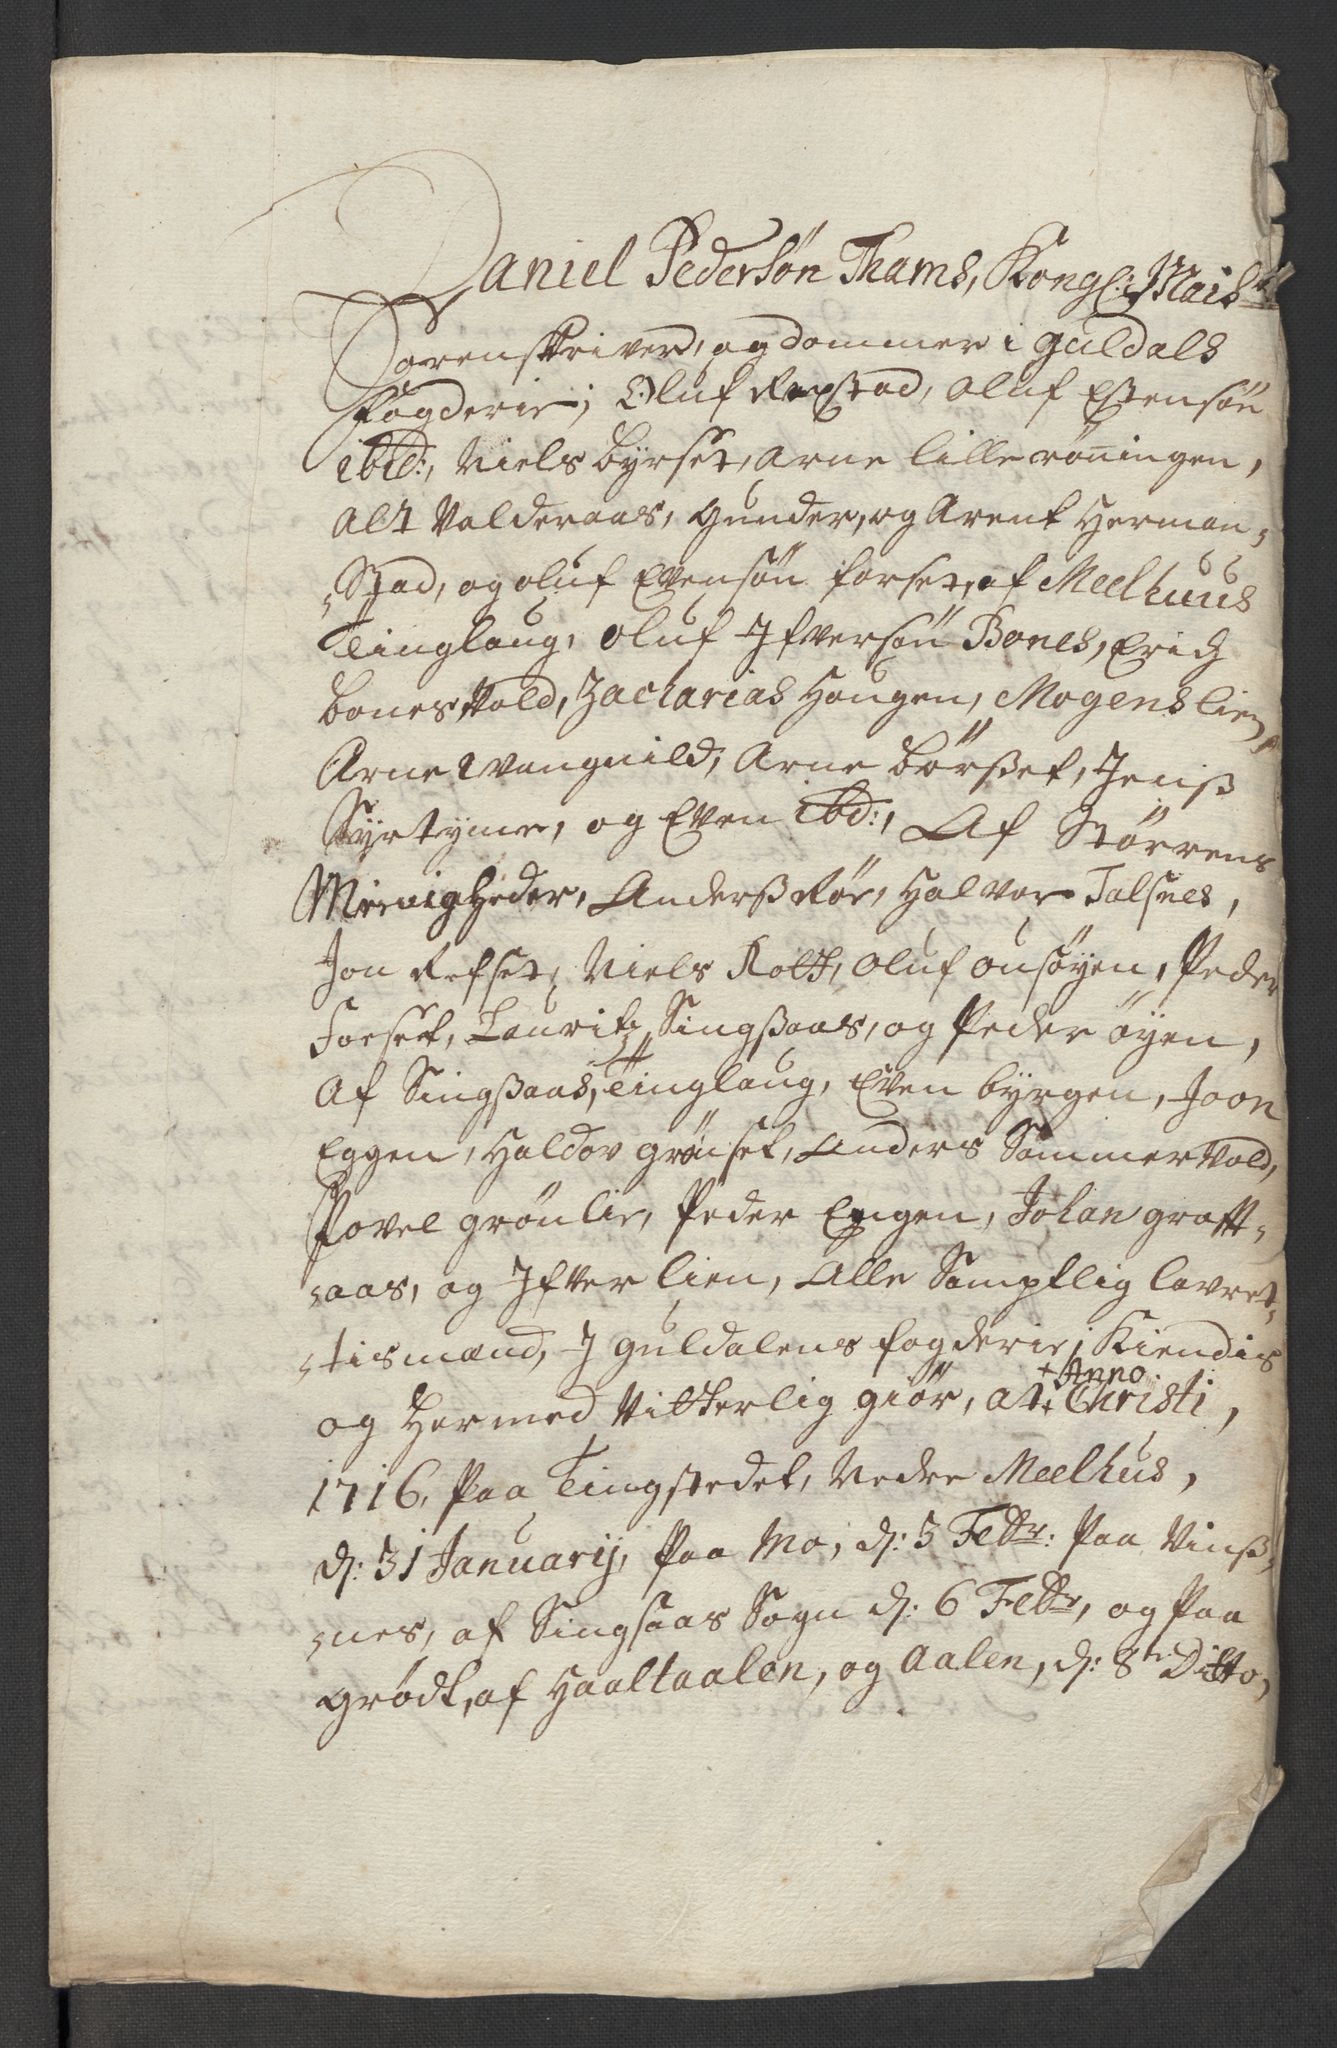 Daniel Pedersøn Thams, Kongl: Maists
Sorenskriver, og dommer i guldals
fogderie; Oluf Rexstad, oluf Estensøn
ibid:, Niels byrset, Arne lille rönningen,
Alt Valderaas, gunder, og Arent Herman-
-stad, og oluf Evensøn forset, af Meelhuus
Tinglaug, oluf Ifversøn Bones, Erich
bones Vold, Zacharias Hougen, Mogens lien,
Arne Evanguild, Arne børsset, Jenss
Syrtyme, og Even ibd:, Af Størrens
Menigheder, Anderss Röe, Halvor Talsnes,
Jon Refset, Niels Rolt, oluf ousøyen, Peder
Forset, Lauritz Singssaas, og Peder öyen,
Af Singssaas, Tinglaug, Even byrgen, Joon
Eggen, Haldov grønset, Anders Sommervold,
Povel grønlie, Peder Engen, Johan gratt-
-aas, og Ifver lien, Alle Samptlig lavret-
-tismænd, I guldalens fogderie; Kiendis
og Hermed Vitterlig giör, at Anno Christi,
1716, Paa Tingstedet, Nedre Meelhus,
d: 31 Januarij, Paa Mo, d: 3 Febr: Paa Vinss-
-nes, af Singsaas Sogn d: 6 Febr, og Paa
grødt, af Haaltaalen, og Aalen, d: 8te Ditto,